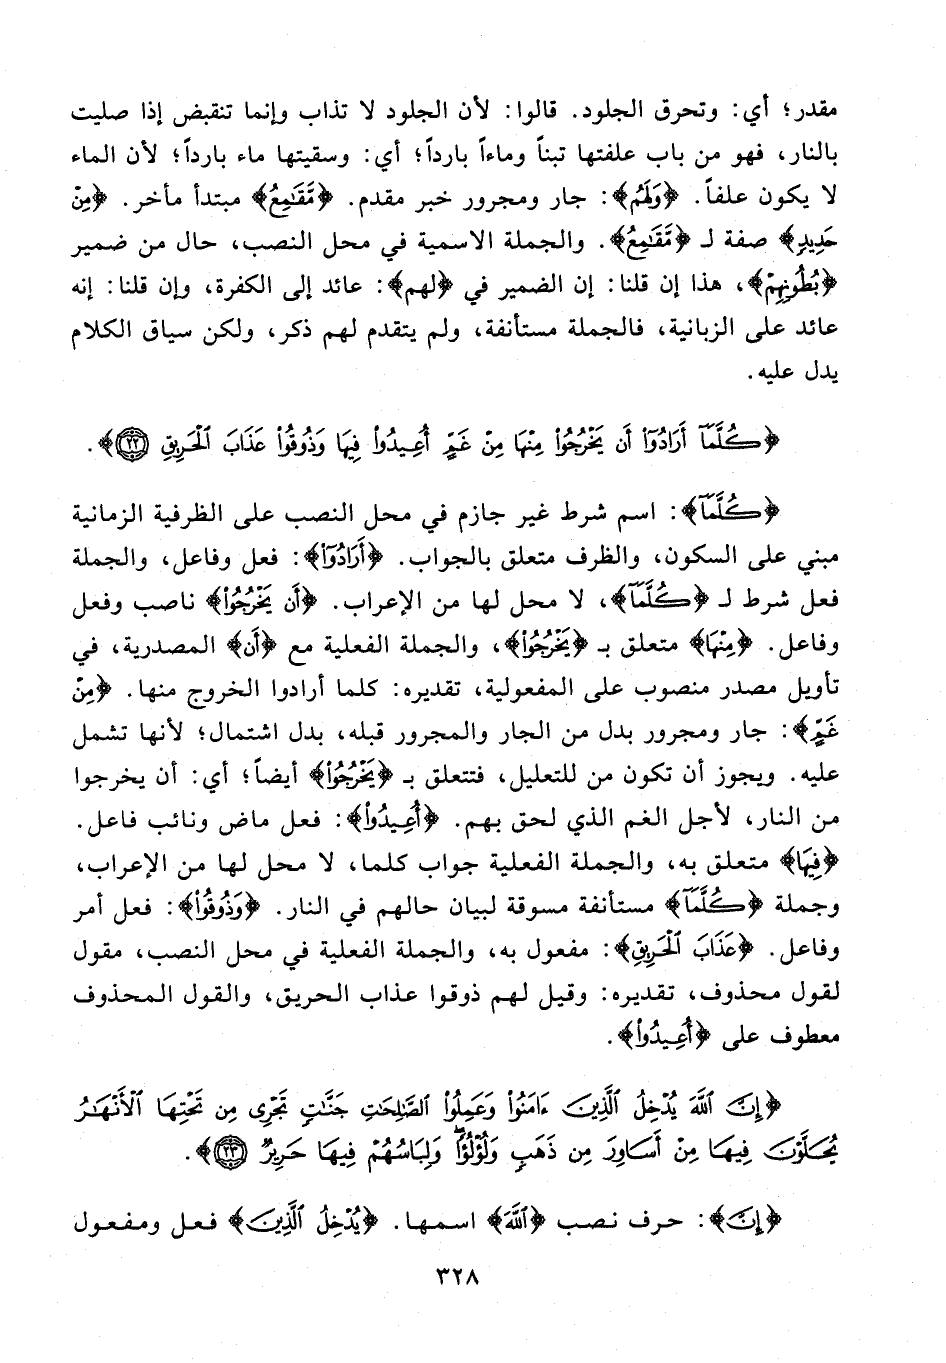 مقدر؛ أي: وتحرق الجلود. قالوا: لأن الجلود لا تذاب وإنما تنقبض إذا صليت
بالنار، فهو من باب علفتها تبناً وماءاً بارداً؛ أي: وسقيتها ماء بارداً؛ لأن الماء
لا يكون علفاً. ﴿وَلَهُم﴾: جار ومجرور خبر مقدم. ﴿مَّقَٰمِعُ﴾ مبتدأ مأخر. ﴿مِنْ
حَدِيدٍ﴾ صفة لـ ﴿مَّقَٰمِعُ﴾. والجملة الاسمية في محل النصب، حال من ضمير
﴿بُطُونِهِمْ﴾، هذا إن قلنا: إن الضمير في ﴿لهم﴾: عائد إلى الكفرة، وإن قلنا: إنه
عائد على الزبانية، فالجملة مستأنفة، ولم يتقدم لهم ذكر، ولكن سياق الكلام
يدل عليه.
﴿كُلَّمَآ أَرَادُوٓا۟ أَن يَخْرُجُوا۟ مِنْهَا مِنْ غَمٍّ أُعِيدُوا۟ فِيهَا وَذُوقُوا۟ عَذَابَ ٱلْحَرِيقِ ٢٢﴾.
﴿كُلَّمَآ﴾: اسم شرط غير جازم في محل النصب على الظرفية الزمانية
مبني على السكون، والظرف متعلق بالجواب. ﴿أَرَادُوٓا۟﴾: فعل وفاعل، والجملة
فعل شرط لـ ﴿كُلَّمَآ﴾، لا محل لها من الإعراب. ﴿أَن يَخْرُجُوا۟﴾ ناصب وفعل
وفاعل. ﴿مِنْهَا﴾ متعلق بـ ﴿يَخْرُجُوا۟﴾، والجملة الفعلية مع ﴿أَن﴾ المصدرية، في
تأويل مصدر منصوب على المفعولية، تقديره: كلما أرادوا الخروج منها. ﴿مِنْ
غَمٍّ﴾: جار ومجرور بدل من الجار والمجرور قبله، بدل اشتمال؛ لأنها تشمل
عليه. ويجوز أن تكون من للتعليل، فتتعلق بـ ﴿يَخْرُجُوا۟﴾ أيضاً؛ أي: أن يخرجوا
من النار، لأجل الغم الذي لحق بهم. ﴿أُعِيدُوا۟﴾: فعل ماض ونائب فاعل.
﴿فِيهَا﴾ متعلق به، والجملة الفعلية جواب كلما، لا محل لها من الإعراب،
وجملة ﴿كُلَّمَآ﴾ مستأنفة مسوقة لبيان حالهم في النار. ﴿وَذُوقُوا۟﴾: فعل أمر
وفاعل. ﴿عَذَابَ ٱلْحَرِيقِ﴾: مفعول به، والجملة الفعلية في محل النصب، مقول
لقول محذوف، تقديره: وقيل لهم ذوقوا عذاب الحريق، والقول المحذوف
معطوف على ﴿أُعِيدُوا۟﴾.
﴿إِنَّ ٱللَّهَ يُدْخِلُ ٱلَّذِينَ ءَامَنُوا۟ وَعَمِلُوا۟ ٱلصَّٰلِحَٰتِ جَنَّٰتٍ تَجْرِى مِن تَحْتِهَا ٱلْأَنْهَٰرُ
يُحَلَّوْنَ فِيهَا مِنْ أَسَاوِرَ مِن ذَهَبٍ وَلُؤْلُؤًا ۖ وَلِبَاسُهُمْ فِيهَا حَرِيرٌ ٢٣﴾.
﴿إِنَّ﴾: حرف نصب ﴿ٱللَّهَ﴾ اسمها. ﴿يُدْخِلُ ٱلَّذِينَ﴾ فعل ومفعول
٣٢٨